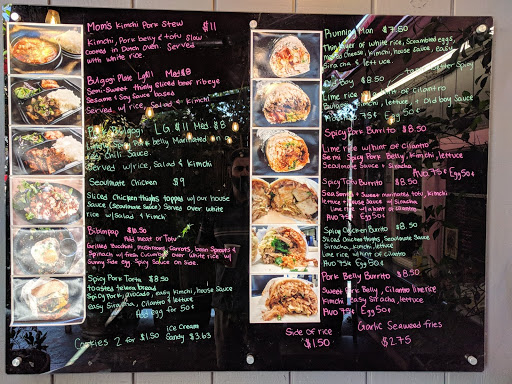 Mom's Kimchi Pork Stew $11
Kimchi, Pork belly & tofu slow
cooked in Dutch oven. Served
with white rice.
Bulgogi Plate Lg $11 Med $8
Semi-Sweet thinly sliced beef ribeye
Sesame & Soy Sauce based
Served w/ rice, Salad & Kimchi
Bulgogi LG $11 Med $8
Pork belly Marinated in
Chili Sauce.
Served w/rice, Salad & Kimchi
Seoulmate Chicken $9
Sliced Chicken thighs topped w/ our house
Sauce (Seoulmate Sauce) Served over white
rice w/ Salad & Kimchi
Bibimbap $10.50
Add meat or Tofu
Grilled Zucchini, mushroom, Carrots, bean Sprouts &
Spinach w/ fresh Cucumber over white rice w/
Sunny Side egg Spicy Sauce on side.
Spicy Pork Torta $8.50
toasted telera bread
Spicy Pork, avocado, easy Kimchi, house Sauce
easy Siracha, Cilantro & lettuce
Add egg for 50¢
Cookies 2 for $1.50
ice Cream
Sandy $3.63
Running Man $7.50
Thin layer of white rice, Scrambled eggs,
cheese, Kimchi, house sauce, easy
Siracha & lettuce.
Boy $8.50
Lime rice w/ hint of cilantro
Kimchi, lettuce, + Old boy Sauce
75¢ Egg 50¢
Spicy Pork Burrito $8.50
Lime rice w/ hint of Cilantro
Semi Spicy Pork Belly, Kimchi, lettuce
Seoulmate Sauce + Siracha
Avo 75¢ Egg 50¢
Spicy Tofu Burrito $8.50
Sweet marinated tofu, Kimchi
lettuce + house Sauce w/ Siracha
Lime rice w/ a hint of cilantro
Avo 75¢ Egg 50¢
Spicy Chicken Burrito $8.50
Sliced Chicken thighs, Seoulmate Sauce
Siracha, Kimchi, lettuce
Lime rice w/ hint of cilantro
Avo 75¢ Egg 50¢
Pork Belly Burrito $8.50
Sweet Pork Belly, Cilantro lime rice
Kimchi, easy Siracha, lettuce
Avo 75¢ Egg 50¢
Side of rice
$1.50
Garlic Seaweed fries
$2.75